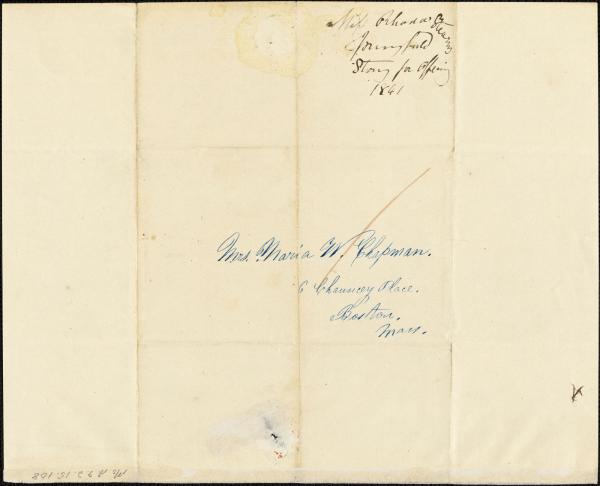 Miss Rhoda
Springfield
Story for Offering
1841
Mrs. Maria W. Chapman.
6 Chauncey Place.
Boston.
Mass.